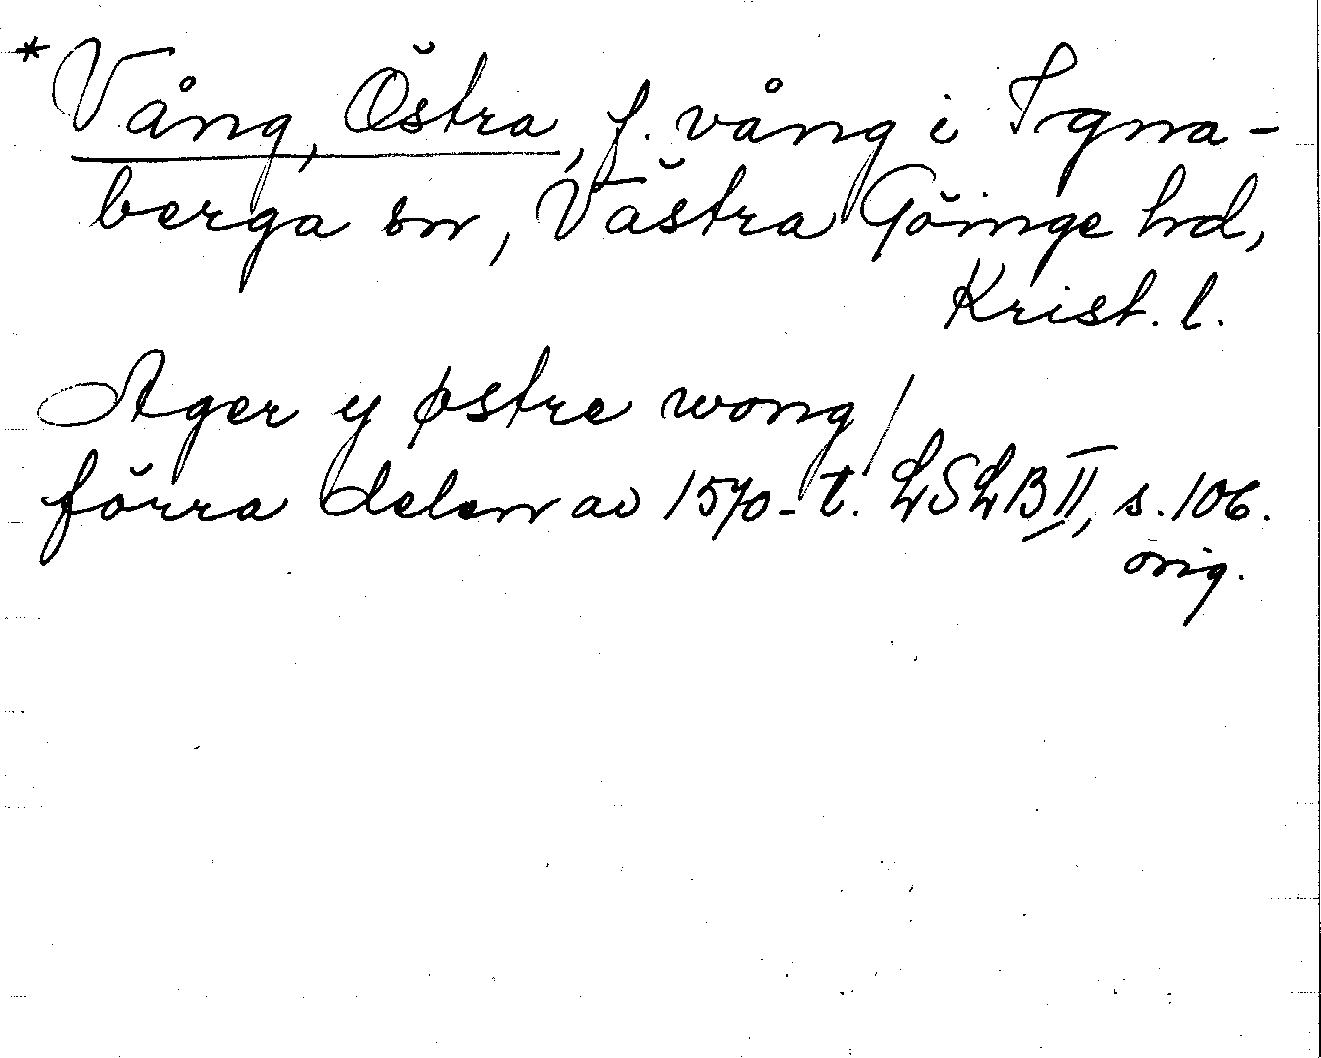 *Vång, Östra, f. vång i Igna-
berga sn, Västra Göinge hd,
Krist. l.
Ager y østre wong/
förra delen av 1570-t. LSLB II, s. 106.
orig.